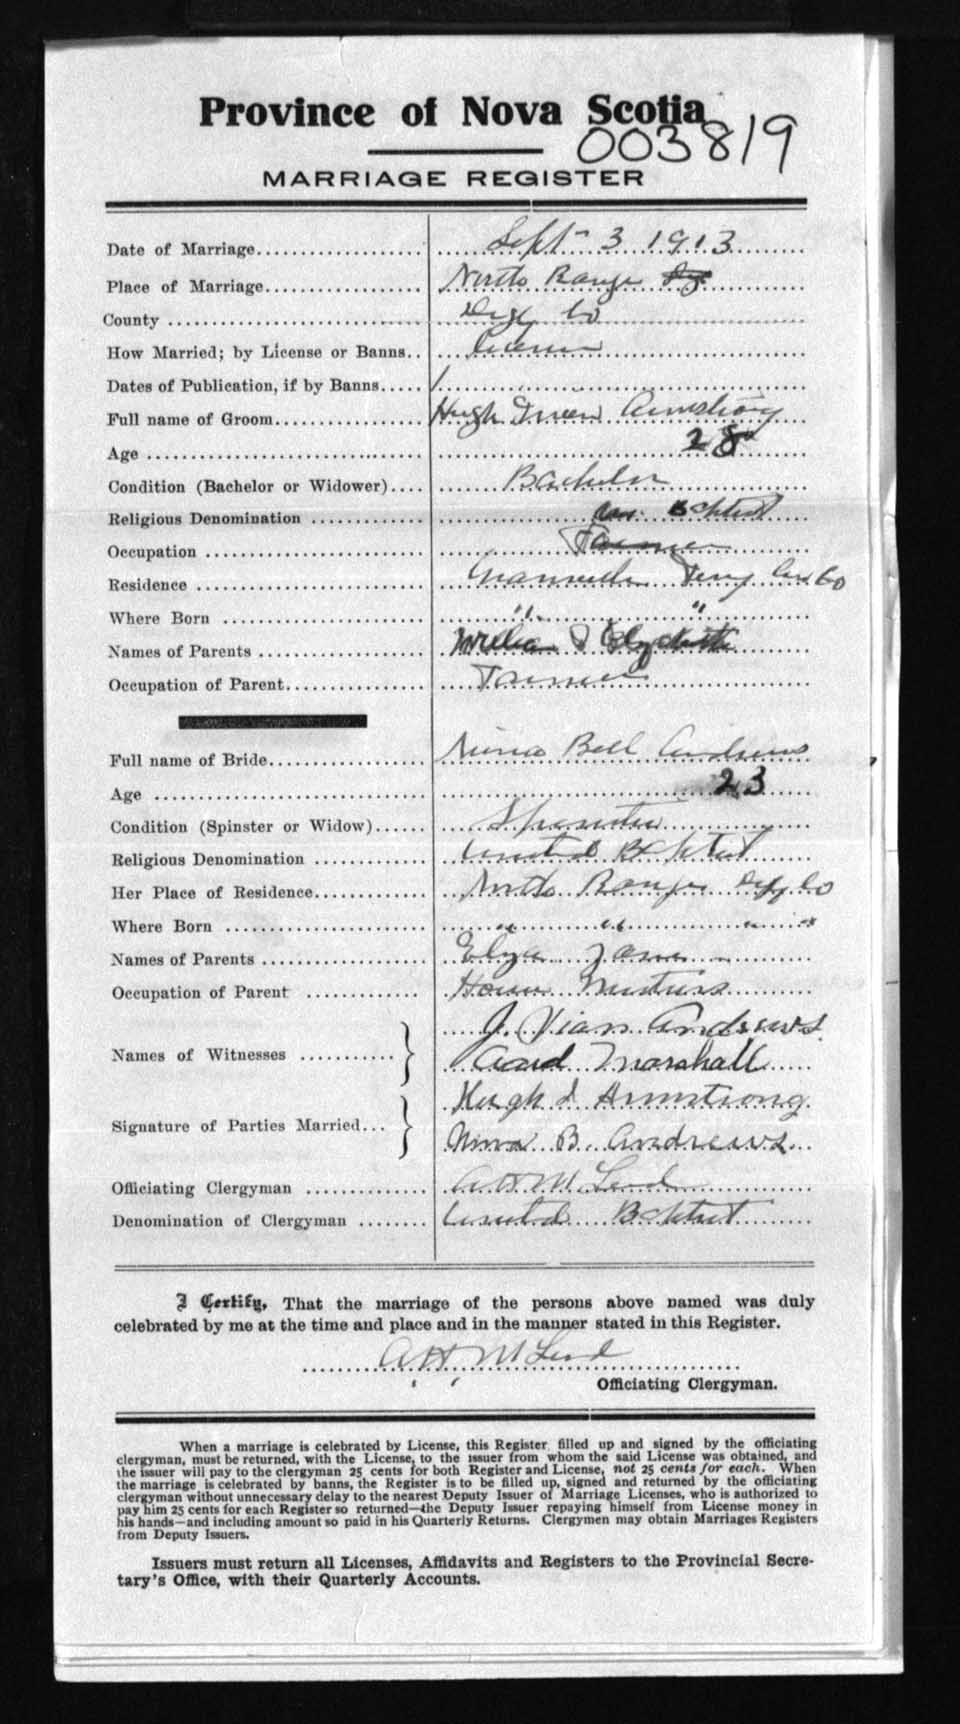 Province of Nova Scotia
003819
MARRIAGE REGISTER
Date of Marriage Sept 3 1913
Place of Marriage North Range
County Digby Co
How Married; by License or Banns License
Dates of Publication, if by Banns
Full name of Groom Hugh Armstrong
Age 28
Condition (Bachelor or Widower) Bachelor
Religious Denomination Baptist
Occupation Farmer
Residence Granville Ferry Co
Where Born " "
Names of Parents William & Elizabeth
Occupation of Parent Farmer
Full name of Bride Nina Bell Andrews
Age 23
Condition (Spinster or Widow) Spinster
Religious Denomination United Baptist
Her Place of Residence North Range Digby Co
Where Born " " " "
Names of Parents Eliza Jane
Occupation of Parent House
Names of Witnesses } J. Vian Andrews
Marshall
Signature of Parties Married } Hugh I Armstrong
Nina B. Andrews
Officiating Clergyman A H McLeod
Denomination of Clergyman United Baptist
I Certify, That the marriage of the persons above named was duly
celebrated by me at the time and place and in the manner stated in this Register.
A H McLeod
Officiating Clergyman.
When a marriage is celebrated by License, this Register filled up and signed by the officiating
clergyman, must be returned, with the License, to the issuer from whom the said License was obtained, and
the issuer will pay to the clergyman 25 cents for both Register and License, not 25 cents for each. When
the marriage is celebrated by banns, the Register is to be filled up, signed and returned by the officiating
clergyman without unnecessary delay to the nearest Deputy Issuer of Marriage Licenses, who is authorized to
pay him 25 cents for each Register so returned—the Deputy Issuer repaying himself from License money in
his hands—and including amount so paid in his Quarterly Returns. Clergymen may obtain Marriages Registers
from Deputy Issuers.
Issuers must return all Licenses, Affidavits and Registers to the Provincial Secre-
tary's Office, with their Quarterly Accounts.